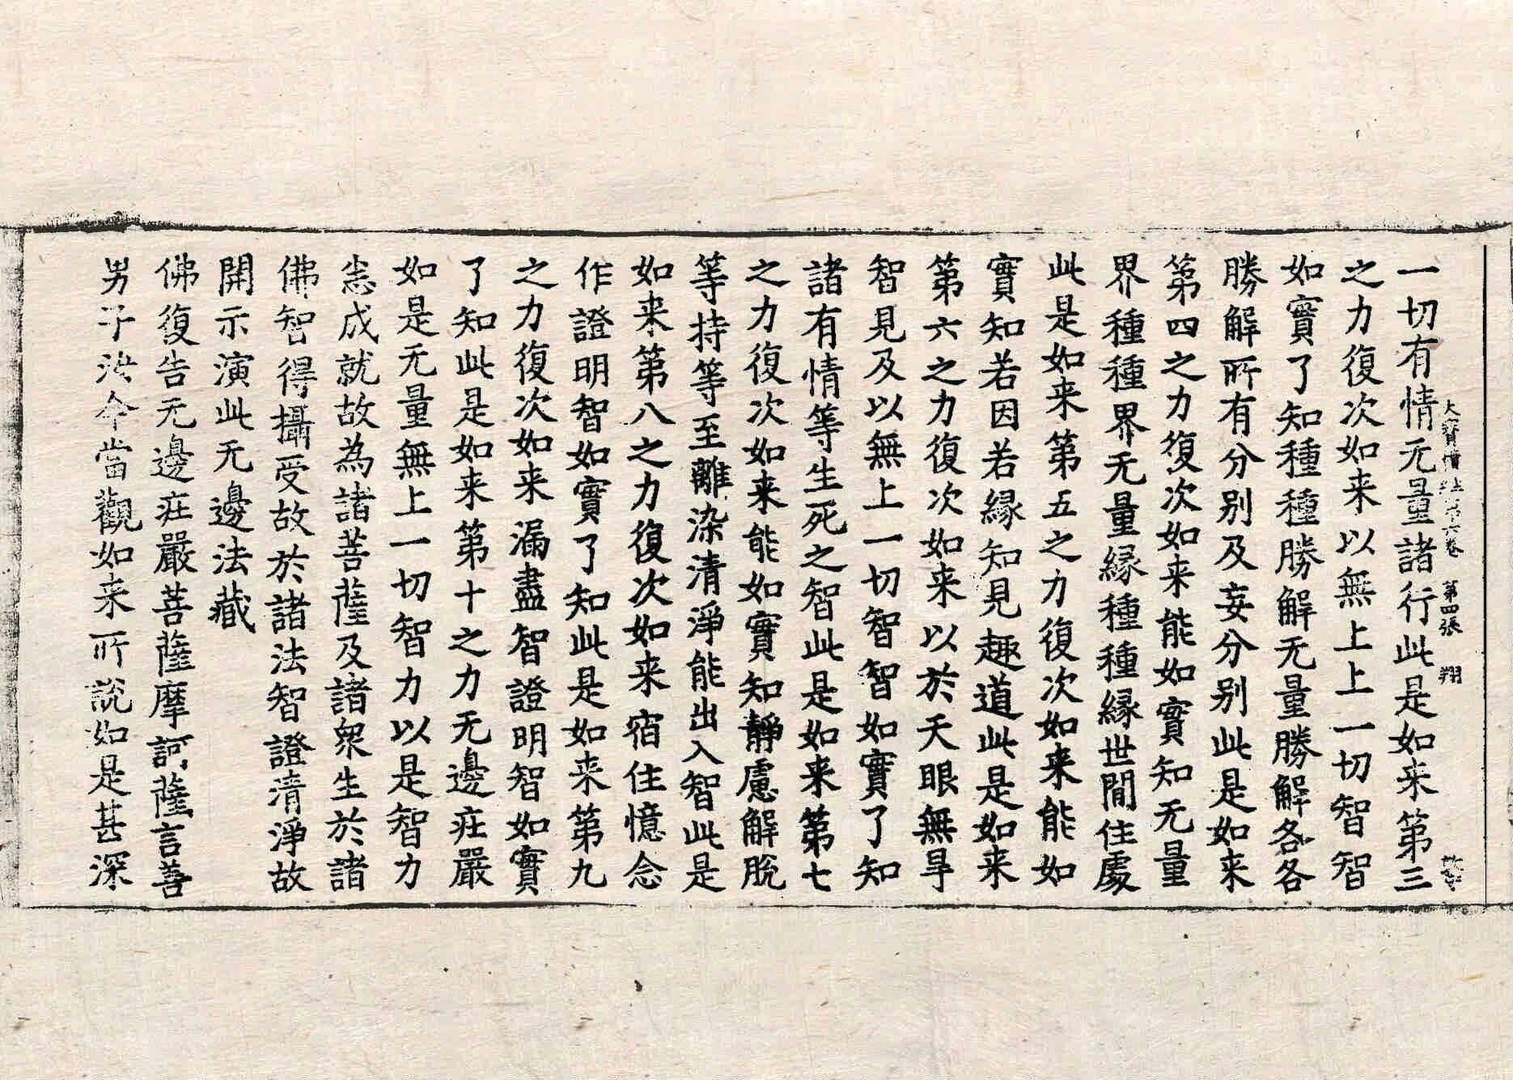 一切有情无量諸行此是如来第三
大寶積経第六卷 第四張 翔
之力復次如来以無上上一切智智
如實了知種種勝解无量勝解各各
勝解所有分别及妄分别此是如来
第四之力復次如来能如實知无量
界種種界无量縁種種縁世間住處
此是如来第五之力復次如来能如
實知若因若縁知見趣道此是如来
第六之力復次如来以於天眼無㝵
智見及以無上一切智智如實了知
諸有情等生死之智此是如来第七
之力復次如来能如實知靜慮解脫
等持等至離染清淨能出入智此是
如来第八之力復次如来宿住憶念
作證明智如實了知此是如来第九
之力復次如来漏盡智證明智如實
了知此是如来第十之力无邊莊嚴
如是无量無上一切智力以是智力
悉成就故為諸菩薩及諸衆生於諸
佛智得攝受故於諸法智證清淨故
開示演此无邊法藏
佛復告无邊莊嚴菩薩摩訶薩言善
男子汝今當觀如来所說如是甚深